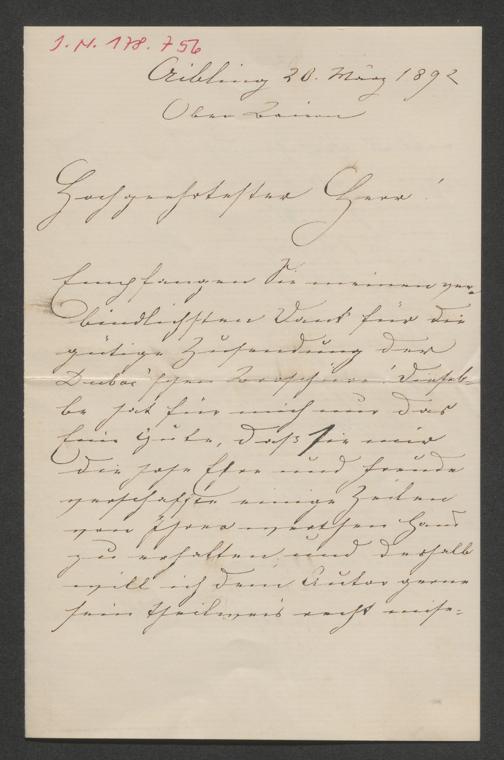 J. N. 178.756
Aibling 20. März 1892
Ober Baiern
Hochgeehrtester Herr!
Empfangen Sie meinen ver-
bindlichsten Dank für die
gütige Zusendung der
Duboc'schen Broschüre! Diesel-
be hat für mich nur das
Eine Gute, daß sie mir
die hohe Ehre und Freude
verschaffte einige Zeilen
von Ihrer werthen Hand
zu erhalten, und deshalb
will ich dem Autor gerne
sein theilweis recht